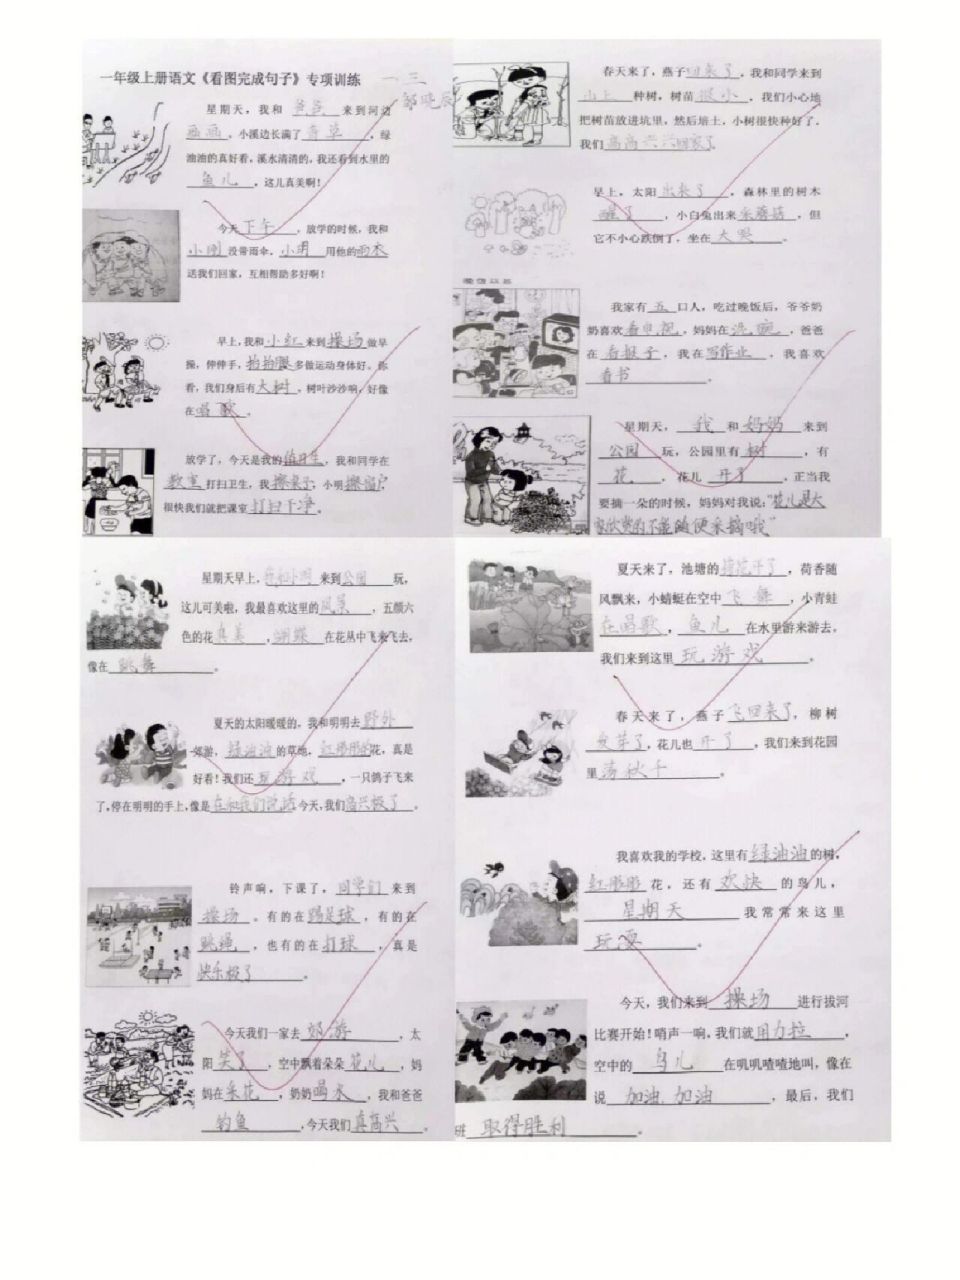 一年级上册语文《看图完成句子》专项训练 一 三
邹晓辰
星期天，我和 爸爸 来到河边
画画，小溪边长满了 青草，绿
油油的真好看，溪水清清的，我还看到水里的
鱼儿，这儿真美啊！
今天 下午，放学的时候，我和
小刚 没带雨伞，小明 用他的 雨衣
送我们回家，互相帮助多好啊！
早上，我和 小红 来到 操场 做早
操，伸伸手，抬抬腿 多做运动身体好。你
看，我们身后有 大树，树叶沙沙响，好像
在 唱歌。
放学了，今天是我的 值日生，我和同学在
教室 打扫卫生，我 擦桌子，小明 擦窗户
很快我们就把课室 打扫干净。
春天来了，燕子 回来了，我和同学来到
山上 种树，树苗 很小，我们小心地
把树苗放进坑里，然后培土，小树很快种好了。
我们 高高兴兴回家了
早上，太阳 出来了，森林里的树木
醒了，小白兔出来 采蘑菇，但
它不小心跌倒了，坐在 大哭。
我家有 五 口人，吃过晚饭后，爷爷奶
奶喜欢 看电视，妈妈在 洗碗，爸爸
在 看报子，我在 写作业，我喜欢
看书。
星期天，我 和 妈妈 来到
公园 玩，公园里有 树，有
花，花儿 开了，正当我
要摘一朵的时候，妈妈对我说："花儿是大
家欣赏的不能随便采摘哦"
星期天早上，我和小明 来到 公园 玩，
这儿可美啦，我最喜欢这里的 风景，五颜六
色的花 真美，蝴蝶 在花丛中飞来飞去，
像在 跳舞。
夏天的太阳暖暖的，我和明明去 野外
郊游，绿油油 的草地，红彤彤 花，真是
好看！我们还 玩游戏，一只鸽子飞来
了，停在明明的手上，像是 在和我们说话 今天，我们 高兴极了。
铃声响，下课了，同学们 来到
操场。有的在 踢足球，有的在
跳绳，也有的在 打球，真是
快乐极了。
今天我们一家去 郊游，太
阳 笑了，空中飘着朵朵 花儿，妈
妈在 采花，奶奶 喝水，我和爸爸
钓鱼，今天我们 真高兴。
夏天来了，池塘的 荷花开了，荷香随
风飘来，小蜻蜓在空中 飞舞，小青蛙
在唱歌，鱼儿 在水里游来游去，
我们来到这里 玩游戏。
春天来了，燕子 飞回来了，柳树
发芽了，花儿也 开了，我们来到花园
里 荡秋千。
我喜欢我的学校，这里有 绿油油 的树，
红彤彤 花，还有 欢快 的鸟儿，
星期天 我常常来这里
玩耍。
今天，我们来到 操场 进行拔河
比赛开始！哨声一响，我们就 用力拉，
空中的 鸟儿 在叽叽喳喳地叫，像在
说 加油，加油，最后，我们
班 取得胜利。